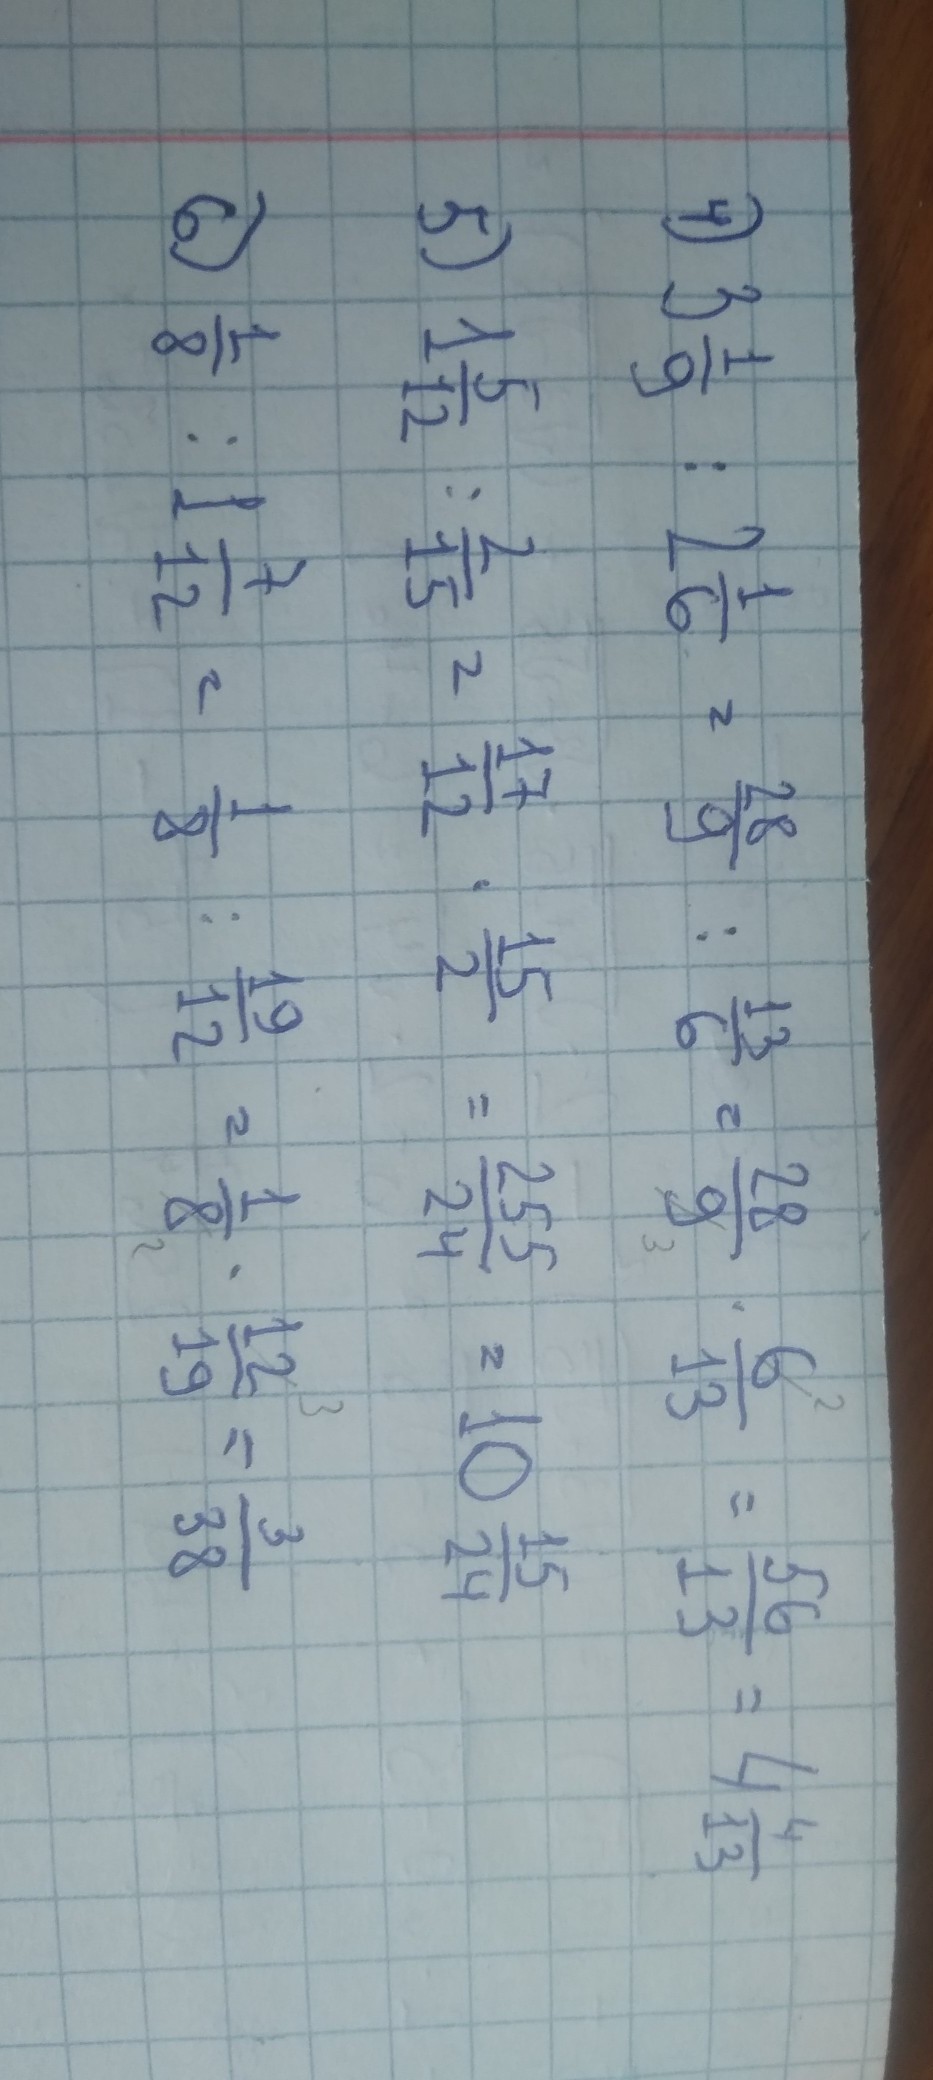 4) 3 1/9 : 2 1/6 = 28/9 : 13/6 = 28/9 3 · 6/13 2 = 56/13 = 4 4/13
5) 1 5/12 : 2/15 = 17/12 · 15/2 = 255/24 = 10 15/24
6) 1/8 : 1 7/12 = 1/8 : 19/12 = 1/8 2 · 12/19 3 = 3/38